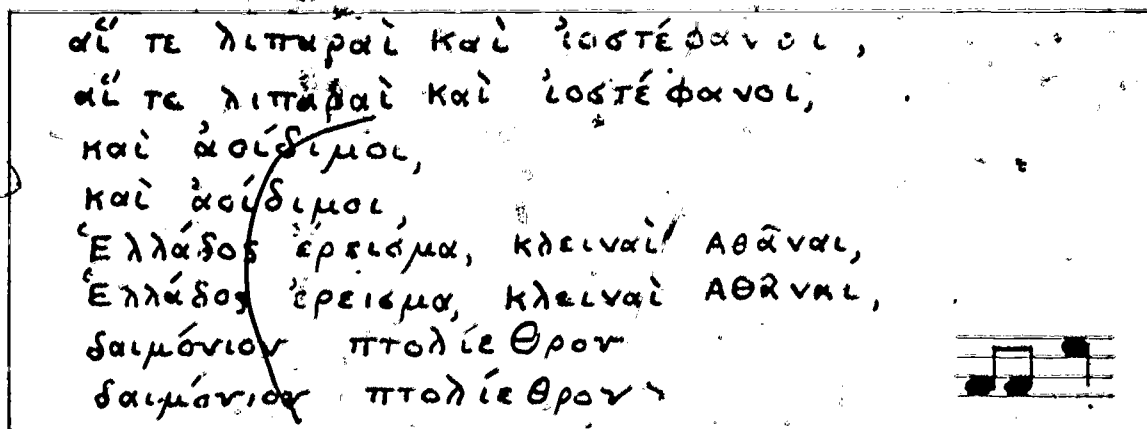 αἵ τε λιπαραὶ καὶ ἰοστέφανοι,
αἵ τε λιπαραὶ καὶ ἰοστέφανοι,
καὶ ἀοίδιμοι,
καὶ ἀοίδιμοι,
Ἑλλάδος ἔρεισμα, κλειναὶ Ἀθᾶναι,
Ἑλλάδος ἔρεισμα, κλειναὶ Ἀθᾶναι,
δαιμόνιον πτολίεθρον
δαιμόνιον πτολίεθρον